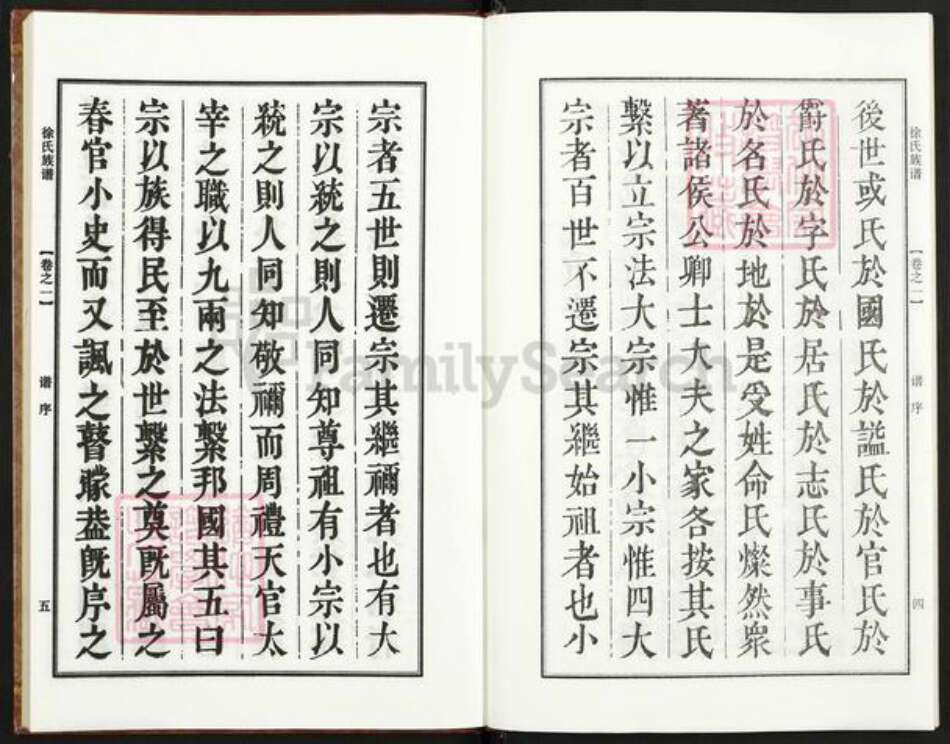 徐氏族谱
【卷之一】
谱序
四
後世或氏於國氏於諡氏於官氏於
爵氏於字氏於居氏於志氏於事氏
於名氏於地於是受姓命氏燦然衆
著諸侯公卿士大夫之家各按其氏
繫以立宗法大宗惟一小宗惟四大
宗者百世不遷宗其繼始祖者也小
宗者五世則遷宗其繼禰者也有大
宗以統之則人同知尊祖有小宗以
統之則人同知敬禰而周禮天官太
宰之職以九兩之法繫邦國其五曰
宗以族得民至於世繫之奠既屬之
春官小史而又諷之瞽矇葢既序之
徐氏族谱
【卷之一】
谱序
五
FamilySearch